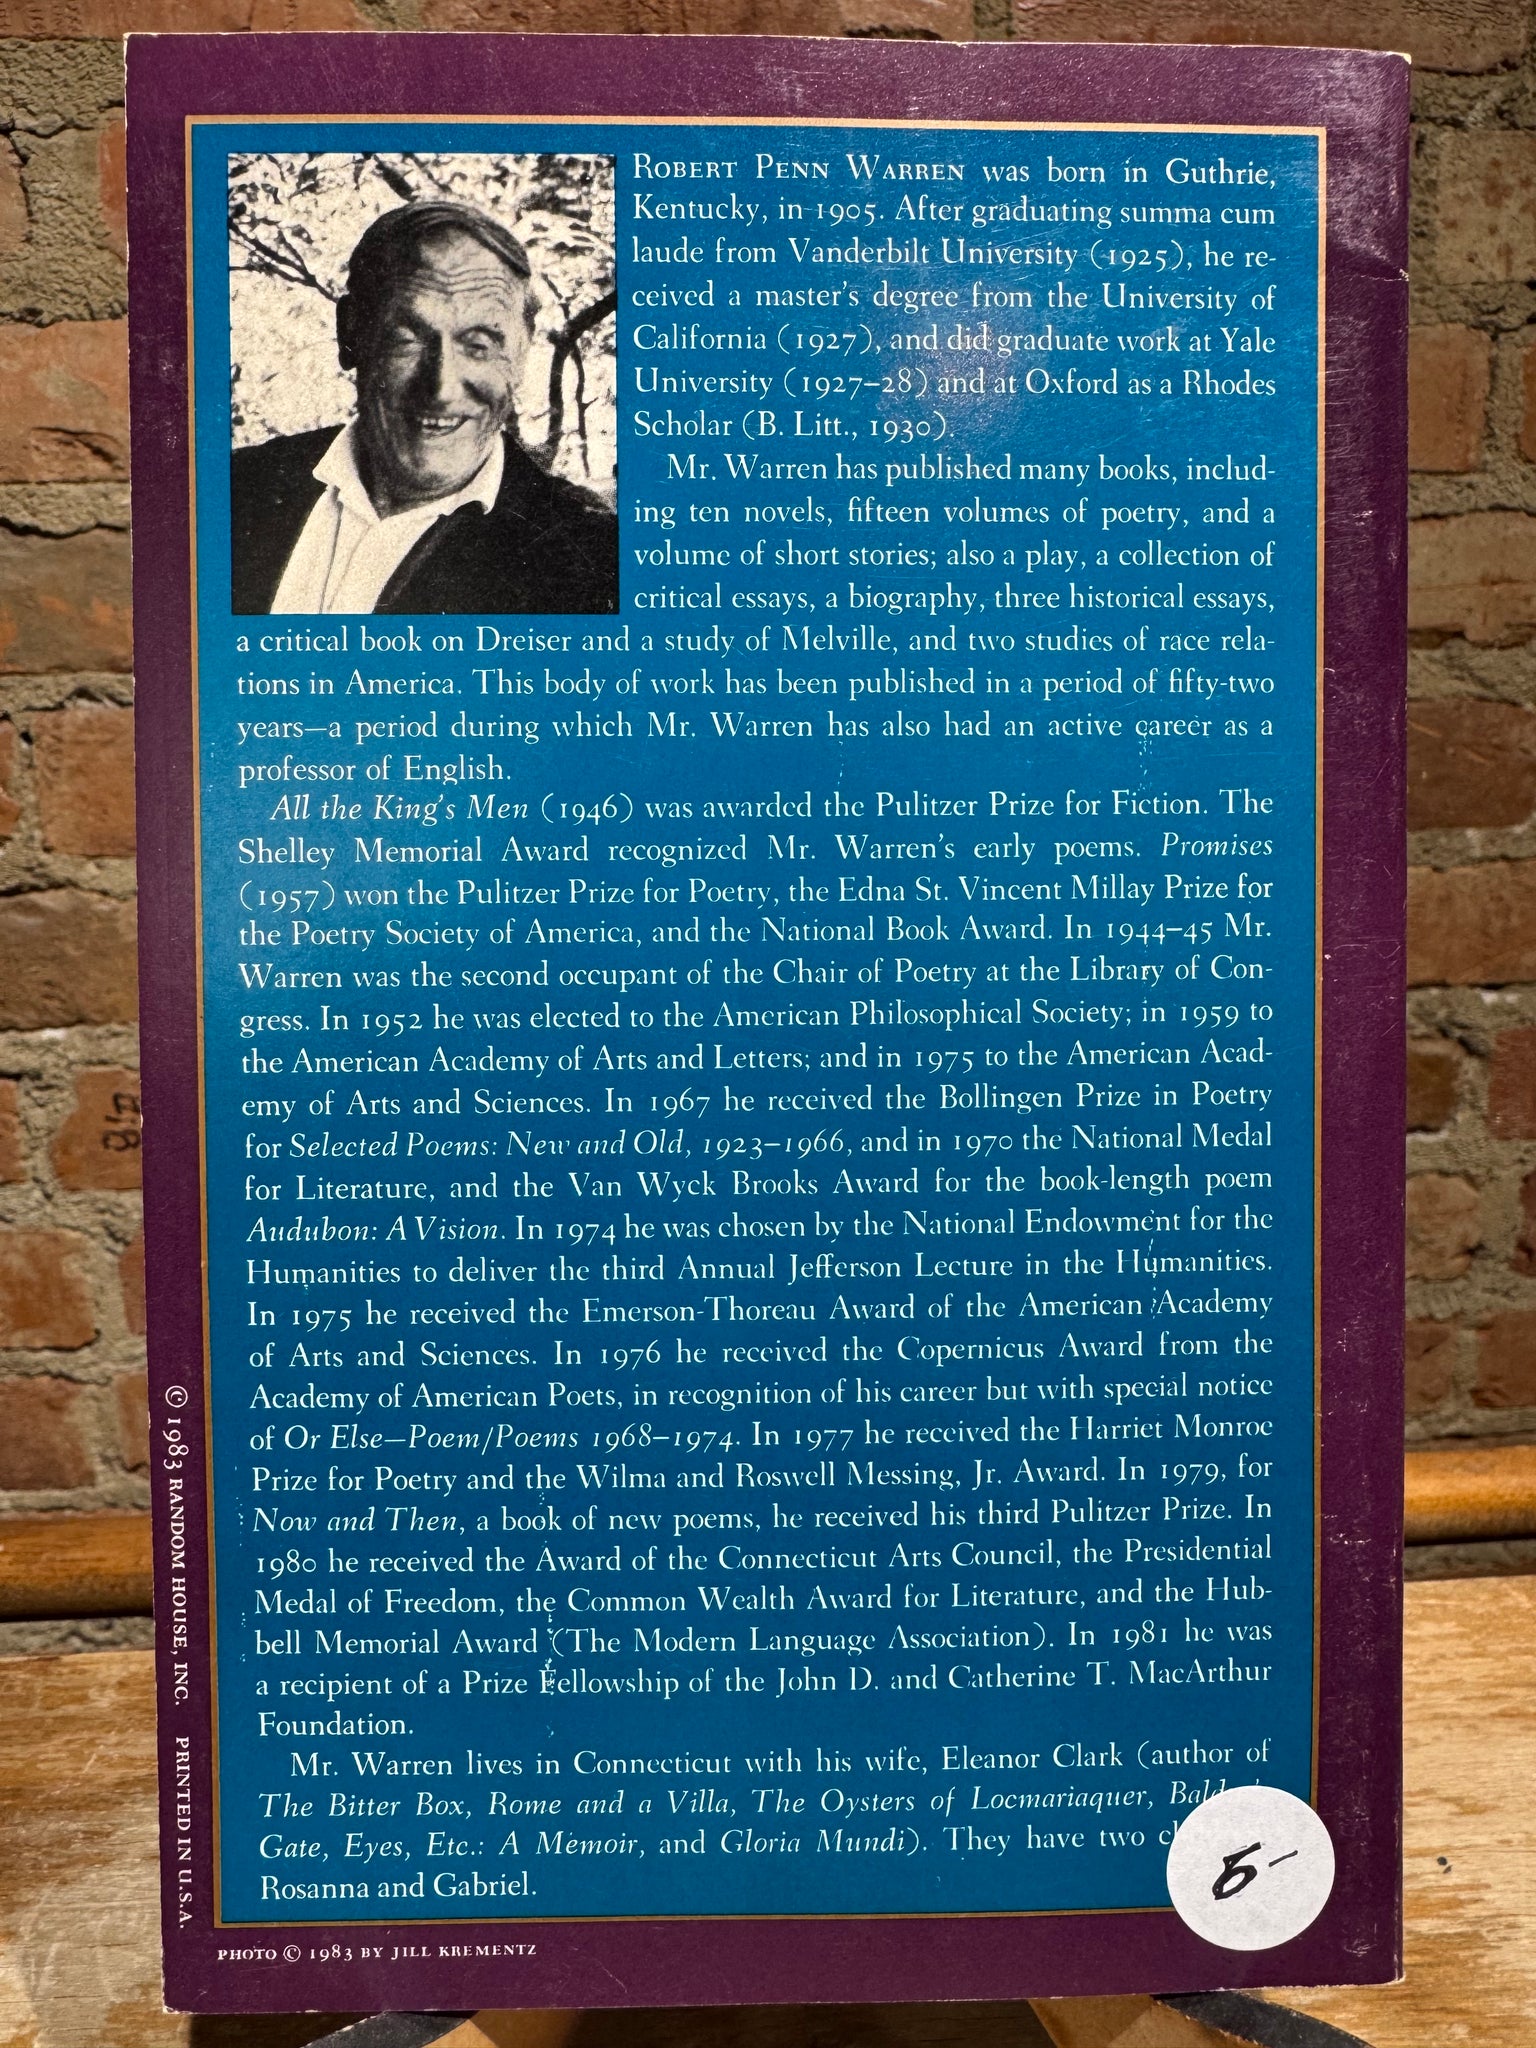 ROBERT PENN WARREN was born in Guthrie,
Kentucky, in 1905. After graduating summa cum
laude from Vanderbilt University (1925), he re-
ceived a master's degree from the University of
California (1927), and did graduate work at Yale
University (1927–28) and at Oxford as a Rhodes
Scholar (B. Litt., 1930).
Mr. Warren has published many books, includ-
ing ten novels, fifteen volumes of poetry, and a
volume of short stories; also a play, a collection of
critical essays, a biography, three historical essays,
a critical book on Dreiser and a study of Melville, and two studies of race rela-
tions in America. This body of work has been published in a period of fifty-two
years—a period during which Mr. Warren has also had an active career as a
professor of English.
All the King's Men (1946) was awarded the Pulitzer Prize for Fiction. The
Shelley Memorial Award recognized Mr. Warren's early poems. Promises
(1957) won the Pulitzer Prize for Poetry, the Edna St. Vincent Millay Prize for
the Poetry Society of America, and the National Book Award. In 1944–45 Mr.
Warren was the second occupant of the Chair of Poetry at the Library of Con-
gress. In 1952 he was elected to the American Philosophical Society; in 1959 to
the American Academy of Arts and Letters; and in 1975 to the American Acad-
emy of Arts and Sciences. In 1967 he received the Bollingen Prize in Poetry
for Selected Poems: New and Old, 1923–1966, and in 1970 the National Medal
for Literature, and the Van Wyck Brooks Award for the book-length poem
Audubon: A Vision. In 1974 he was chosen by the National Endowment for the
Humanities to deliver the third Annual Jefferson Lecture in the Humanities.
In 1975 he received the Emerson-Thoreau Award of the American Academy
of Arts and Sciences. In 1976 he received the Copernicus Award from the
Academy of American Poets, in recognition of his career but with special notice
of Or Else—Poem/Poems 1968–1974. In 1977 he received the Harriet Monroe
Prize for Poetry and the Wilma and Roswell Messing, Jr. Award. In 1979, for
Now and Then, a book of new poems, he received his third Pulitzer Prize. In
1980 he received the Award of the Connecticut Arts Council, the Presidential
Medal of Freedom, the Common Wealth Award for Literature, and the Hub-
bell Memorial Award (The Modern Language Association). In 1981 he was
a recipient of a Prize Fellowship of the John D. and Catherine T. MacArthur
Foundation.
Mr. Warren lives in Connecticut with his wife, Eleanor Clark (author of
The Bitter Box, Rome and a Villa, The Oysters of Locmariaquer,
Gate, Eyes, Etc.: A Memoir, and Gloria Mundi). They have two
Rosanna and Gabriel.
5–
PHOTO © 1983 BY JILL KREMENTZ
© 1983 RANDOM HOUSE, INC. PRINTED IN U.S.A.